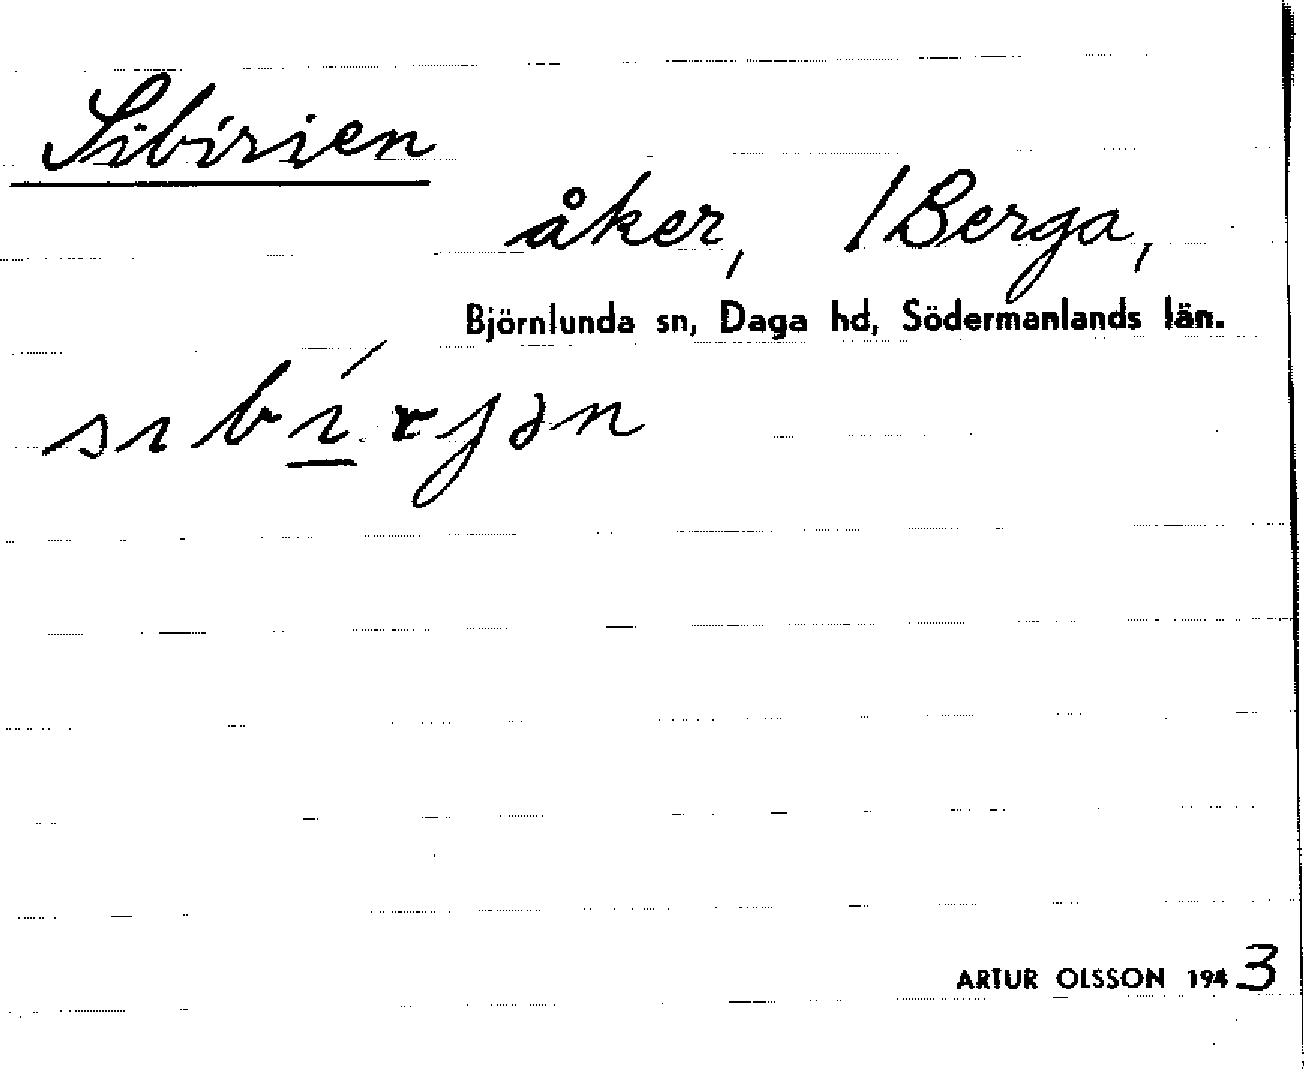 Sibirien
åker, /Berga,
Björnlunda sn, Daga hd, Södermanlands län.
sıbı́rjən
ARTUR OLSSON 1943